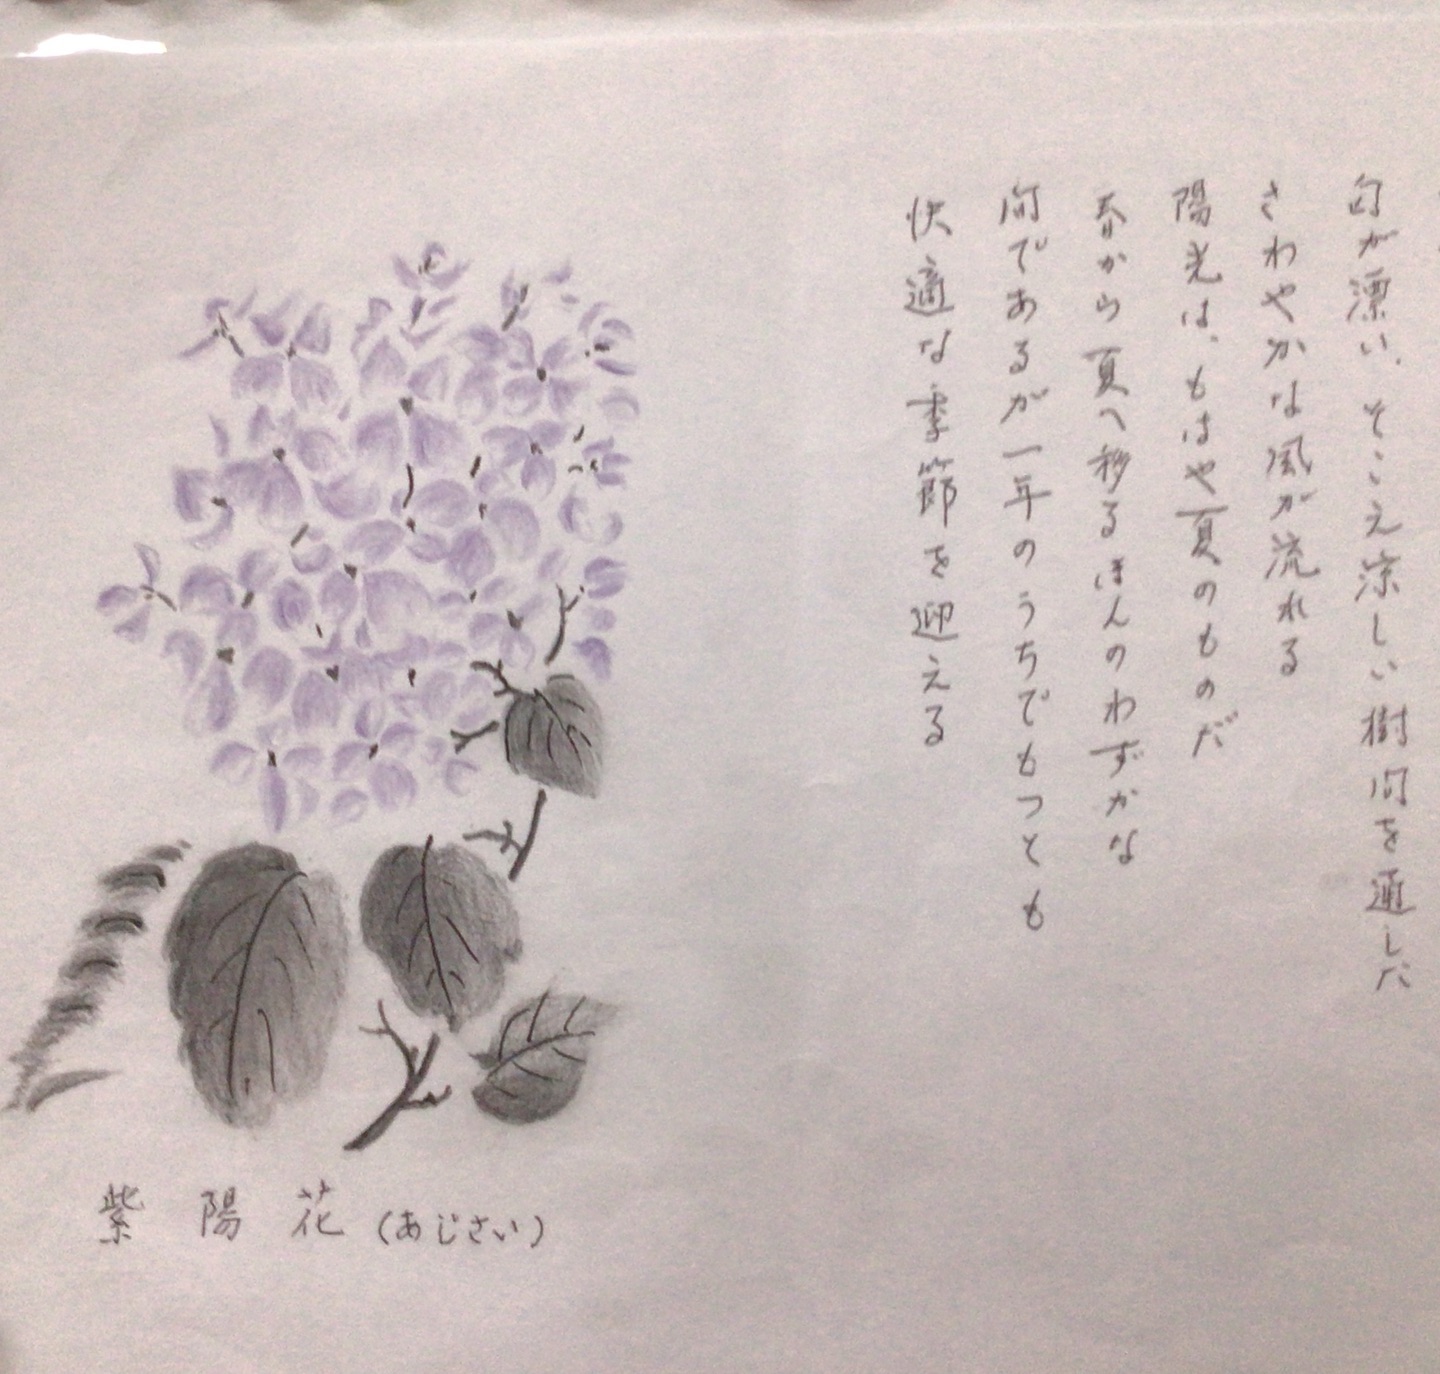 匂が漂い、そこえ涼しい樹間を通した
さわやかな風が流れる
陽光は、もはや夏のものだ
春から夏へ移るほんのわずかな
間であるが一年のうちでもっとも
快適な季節を迎える
紫陽花(あじさい)